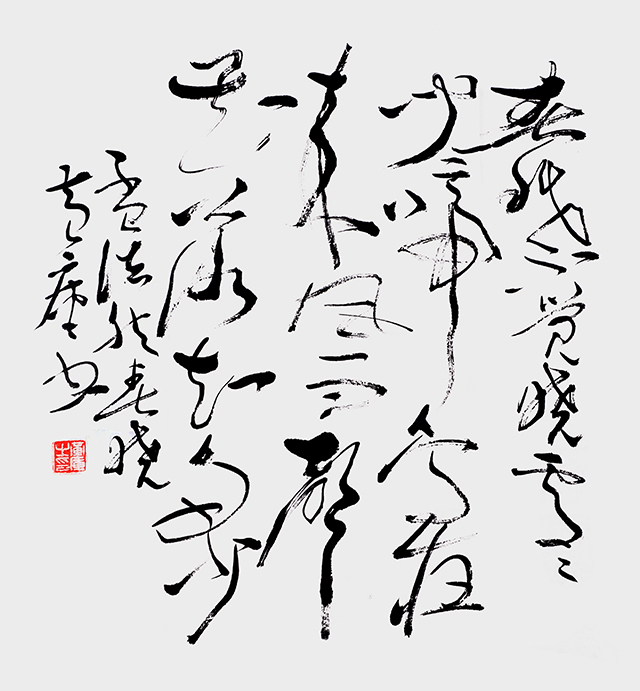 春眠不觉晓处々
闻啼鸟夜
来风雨声
花落知多少
孟浩然春晓
书